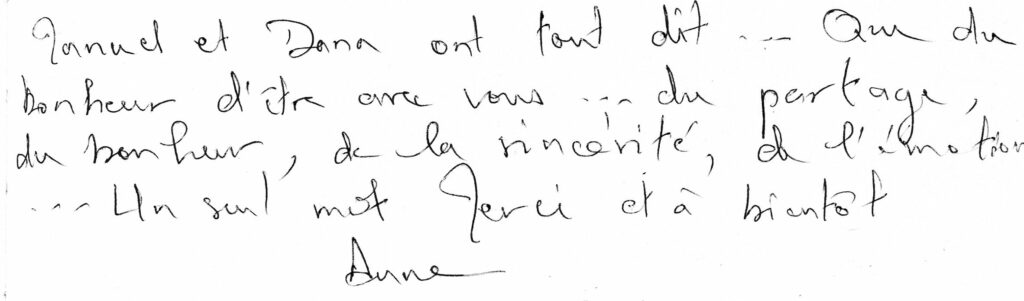 Manuel et Dana ont tout dit ... Que du
bonheur d'être avec vous ... du partage,
du bonheur, de la sincérité, de l'émotion
... Un seul mot Merci et à bientôt
Anne